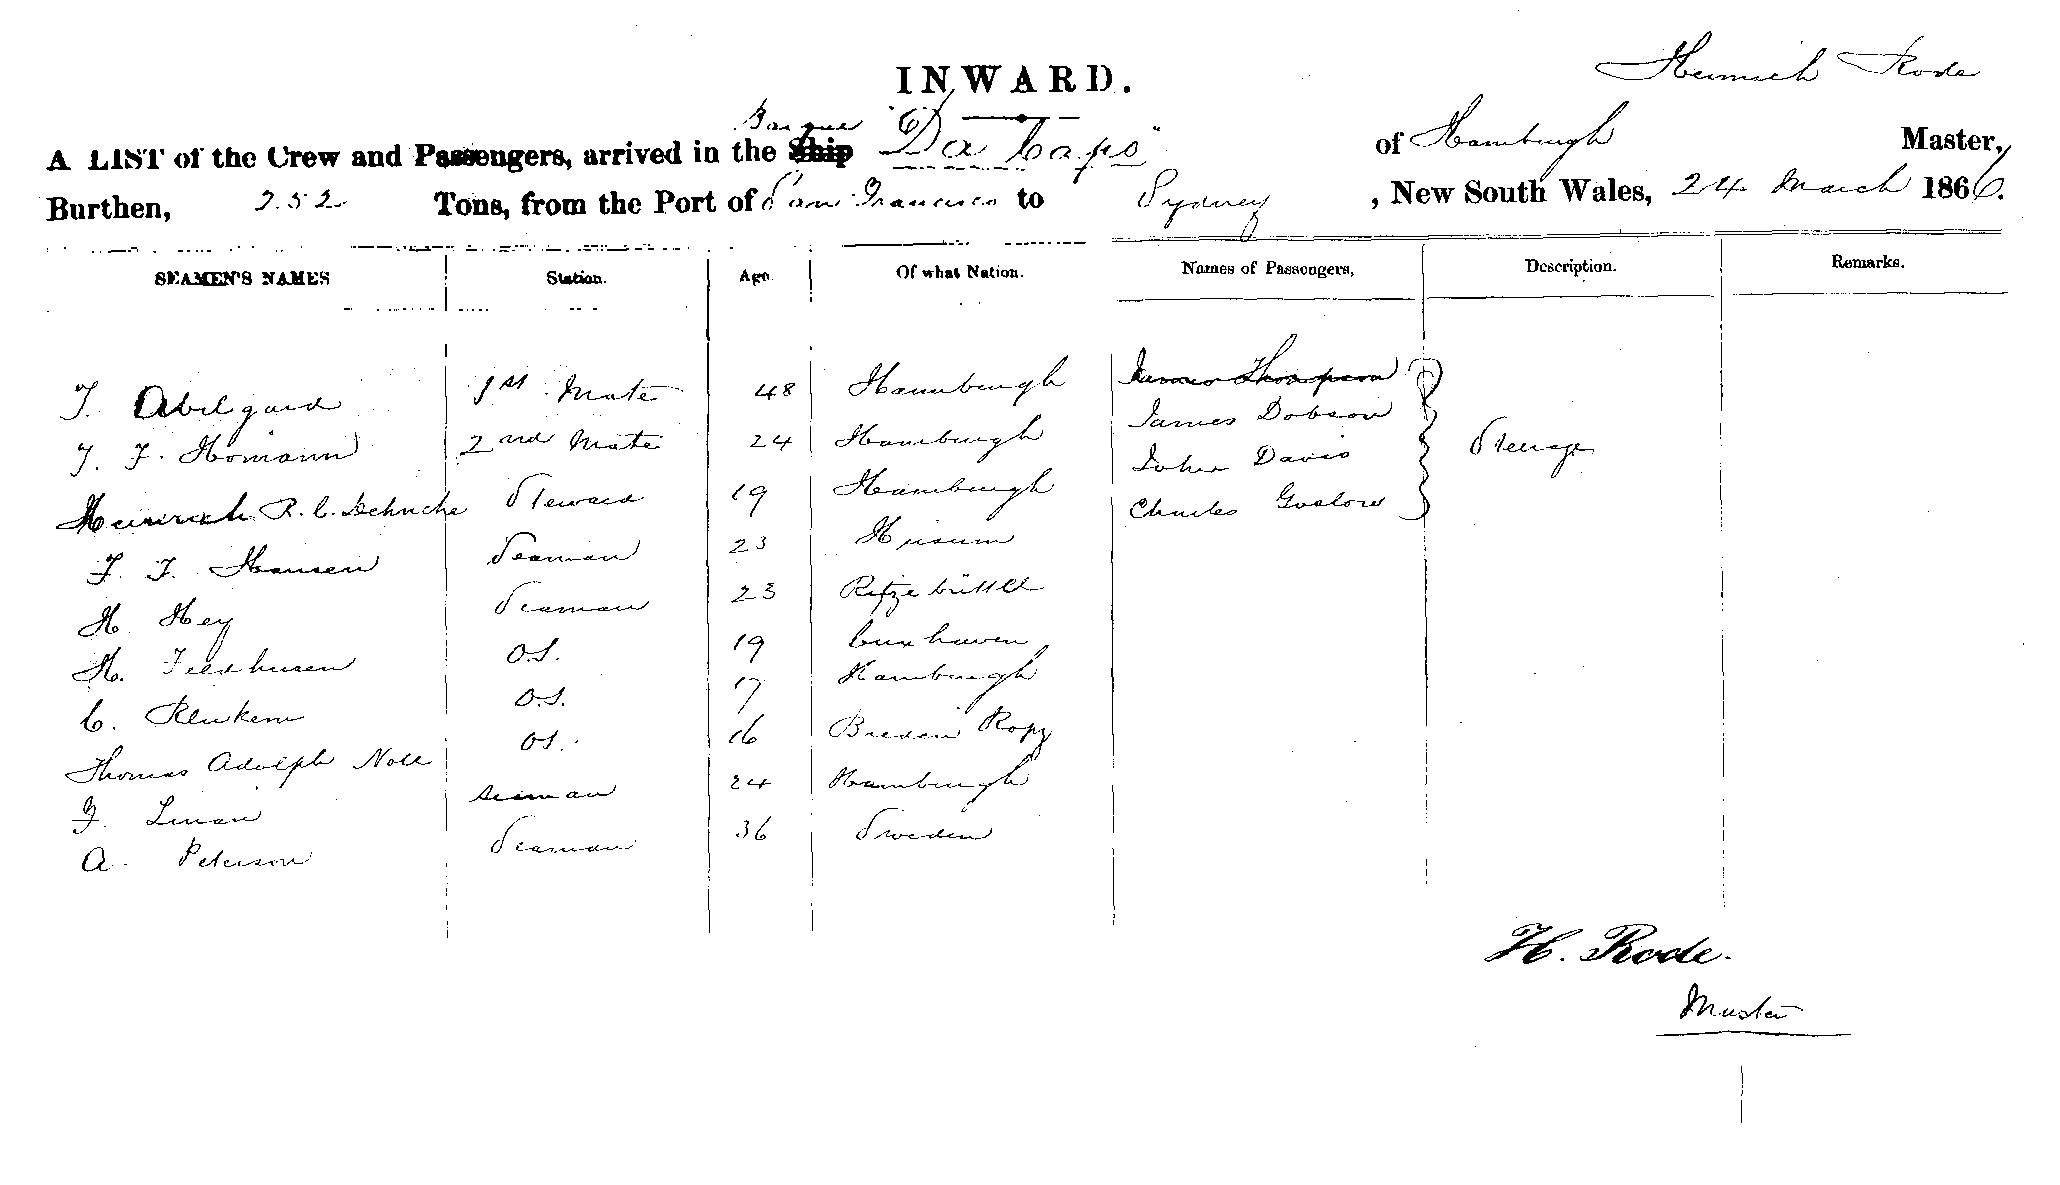 INWARD.
Heinrich Rode
A LIST of the Crew and Passengers, arrived in the Ship Barque "Da Capo" of Hamburgh Master,
Burthen, 252 Tons, from the Port of San Francisco to Sydney, New South Wales, 24 March 1866.
SEAMEN'S NAMES Station. Age. Of what Nation. Names of Passengers, Description. Remarks.
J. Abelgaard 1st Mate 48 Hamburgh James Thompson
J. F. Homann 2nd Mate 24 Hamburgh James Dobson
Heinrich R. C. Steward 19 Hamburgh John Davis Steerage
J. J. Hansen Seaman 23 Husum Charles Goslow
H. Hey Seaman 23 Ritzebüttel
H. Feldhusen O.S. 19 Cuxhaven
C. O.S. 17 Hamburgh
Thomas Adolph Nole OS. 16
J. Seaman 24 Hamburgh
A. Peterson Seaman 36 Sweden
H. Rode.
Master